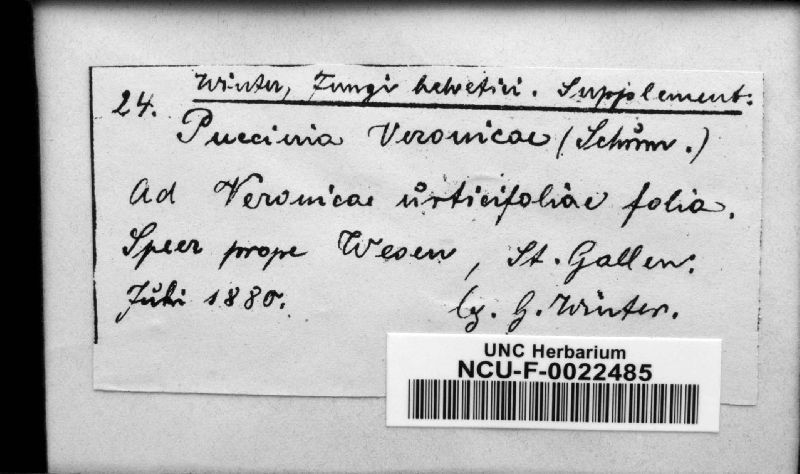 Winter, Fungi helvetici. Supplement:
24.
Puccinia Veronicae (Schům.)
Ad Veronicae ůrticifoliae folia.
Speer prope Wesen, St. Gallen.
Jůli 1880. lg. G. Winter.
UNC Herbarium
NCU-F-0022485